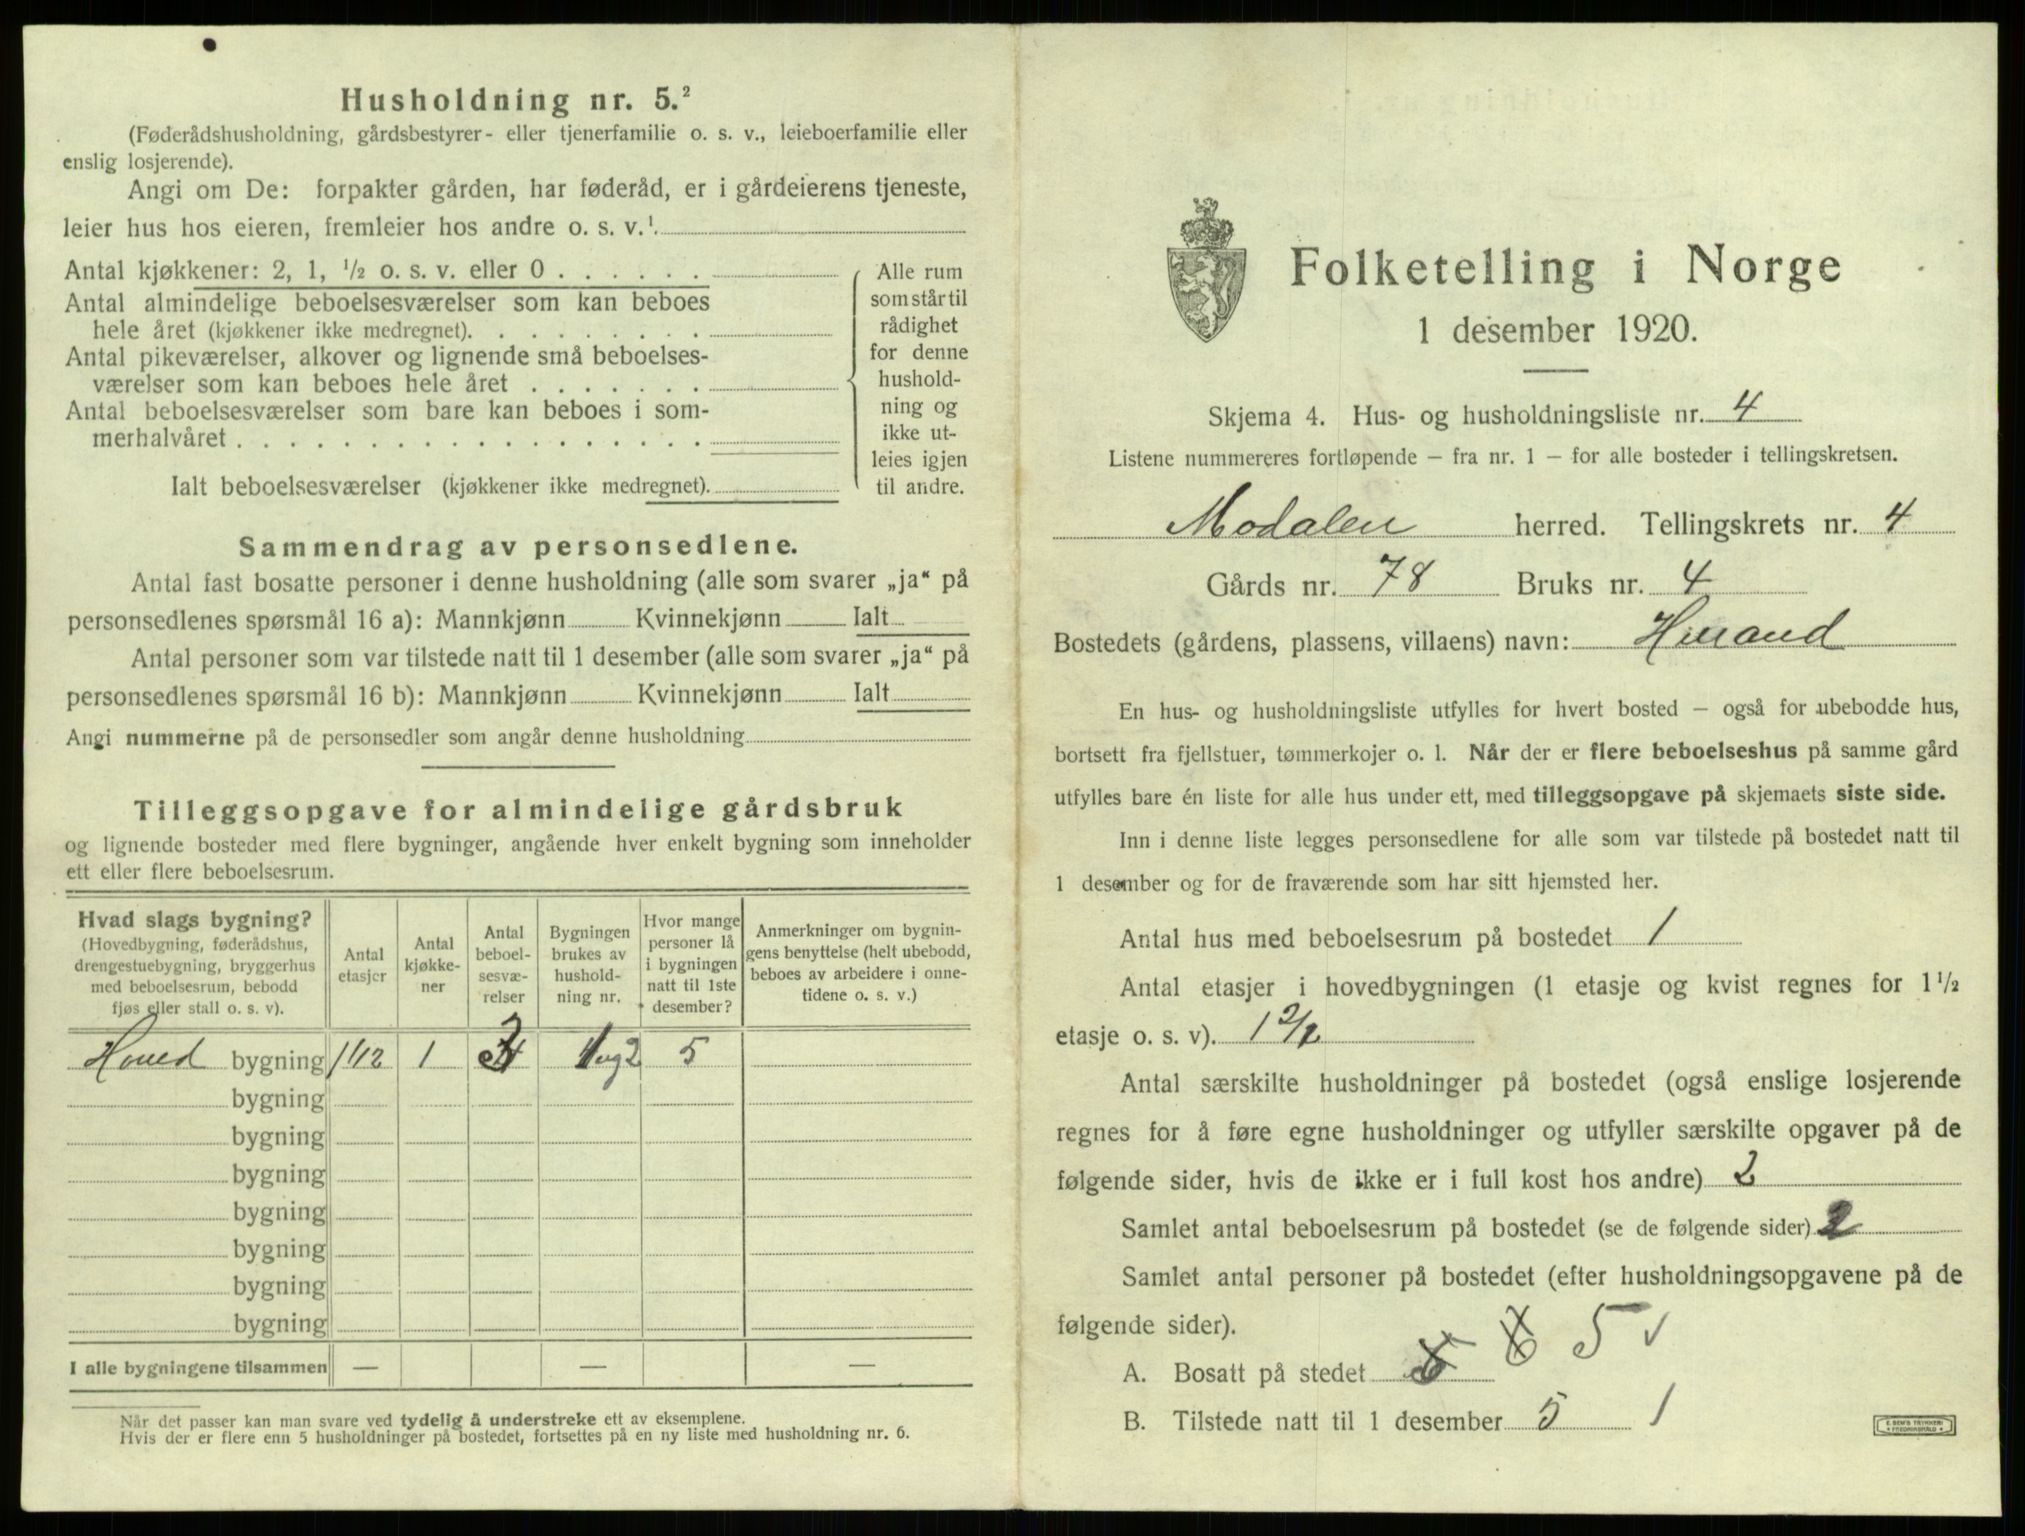 Husholdning nr. 5.²
(Føderådshusholdning, gårdsbestyrer- eller tjenerfamilie o. s. v., leieboerfamilie eller
enslig losjerende).
Angi om De: forpakter gården, har føderåd, er i gårdeierens tjeneste,
leier hus hos eieren, fremleier hos andre o. s. v.¹
Antal kjøkkener: 2, 1, ½ o. s. v. eller 0 . . . . . .
Antal almindelige beboelsesværelser som kan beboes
hele året (kjøkkener ikke medregnet). . . . . . . . .
Antal pikeværelser, alkover og lignende små beboelses-
værelser som kan beboes hele året . . . . . . .
Antal beboelsesværelser som bare kan beboes i som-
merhalvåret . . . . . . . . . . . . . . . . . .
Ialt beboelsesværelser (kjøkkener ikke medregnet).
Alle rum
som står til
rådighet
for denne
hushold-
ning og
ikke ut-
leies igjen
til andre.
Sammendrag av personsedlene.
Antal fast bosatte personer i denne husholdning (alle som svarer „ja“ på
personsedlenes spørsmål 16 a): Mannkjønn Kvinnekjønn Ialt
Antal personer som var tilstede natt til 1 desember (alle som svarer „ja“ på
personsedlenes spørsmål 16 b): Mannkjønn Kvinnekjønn Ialt
Angi nummerne på de personsedler som angår denne husholdning
Tilleggsopgave for almindelige gårdsbruk
og lignende bosteder med flere bygninger, angående hver enkelt bygning som inneholder
ett eller flere beboelsesrum.
Hvad slags bygning?
(Hovedbygning, føderådshus,
drengestuebygning, bryggerhus
med beboelsesrum, bebodd
fjøs eller stall o. s. v).
Antal
etasjer
Antal
kjøkke-
ner
Antal
beboel-
sesvæ-
relser
Bygningen
brukes av
hushold-
ning nr.
Hvor mange
personer lå
i bygningen
natt til 1ste
desember?
Anmerkninger om bygnin-
gens benyttelse (helt ubebodd,
beboes av arbeidere i onne-
tidene o. s. v.)
Hoved bygning 1 1/2 1 1 og 2 5
bygning
bygning
bygning
bygning
bygning
bygning
bygning
I alle bygningene tilsammen — — —
Når det passer kan man svare ved tydelig å understreke ett av eksemplene.
Hvis der er flere enn 5 husholdninger på bostedet, fortsettes på en ny liste med husholdning nr. 6.
Folketelling i Norge
1 desember 1920.
Skjema 4. Hus- og husholdningsliste nr. 4
Listene nummereres fortløpende — fra nr. 1 — for alle bosteder i tellingskretsen.
Modalen herred. Tellingskrets nr. 4
Gårds nr. 78 Bruks nr. 4
Bostedets (gårdens, plassens, villaens) navn:
En hus- og husholdningsliste utfylles for hvert bosted — også for ubebodde hus,
bortsett fra fjellstuer, tømmerkojer o. l. Når der er flere beboelseshus på samme gård
utfylles bare én liste for alle hus under ett, med tilleggsopgave på skjemaets siste side.
Inn i denne liste legges personsedlene for alle som var tilstede på bostedet natt til
1 desember og for de fraværende som har sitt hjemsted her.
Antal hus med beboelsesrum på bostedet 1
Antal etasjer i hovedbygningen (1 etasje og kvist regnes for 1½
etasje o. s. v).
Antal særskilte husholdninger på bostedet (også enslige losjerende
regnes for å føre egne husholdninger og utfyller særskilte opgaver på de
følgende sider, hvis de ikke er i full kost hos andre) 2
Samlet antal beboelsesrum på bostedet (se de følgende sider) 2
Samlet antal personer på bostedet (efter husholdningsopgavene på de
følgende sider).
A. Bosatt på stedet 5
B. Tilstede natt til 1 desember 5
E. SEM'S TRYKKERI
FREDRIKSHALD